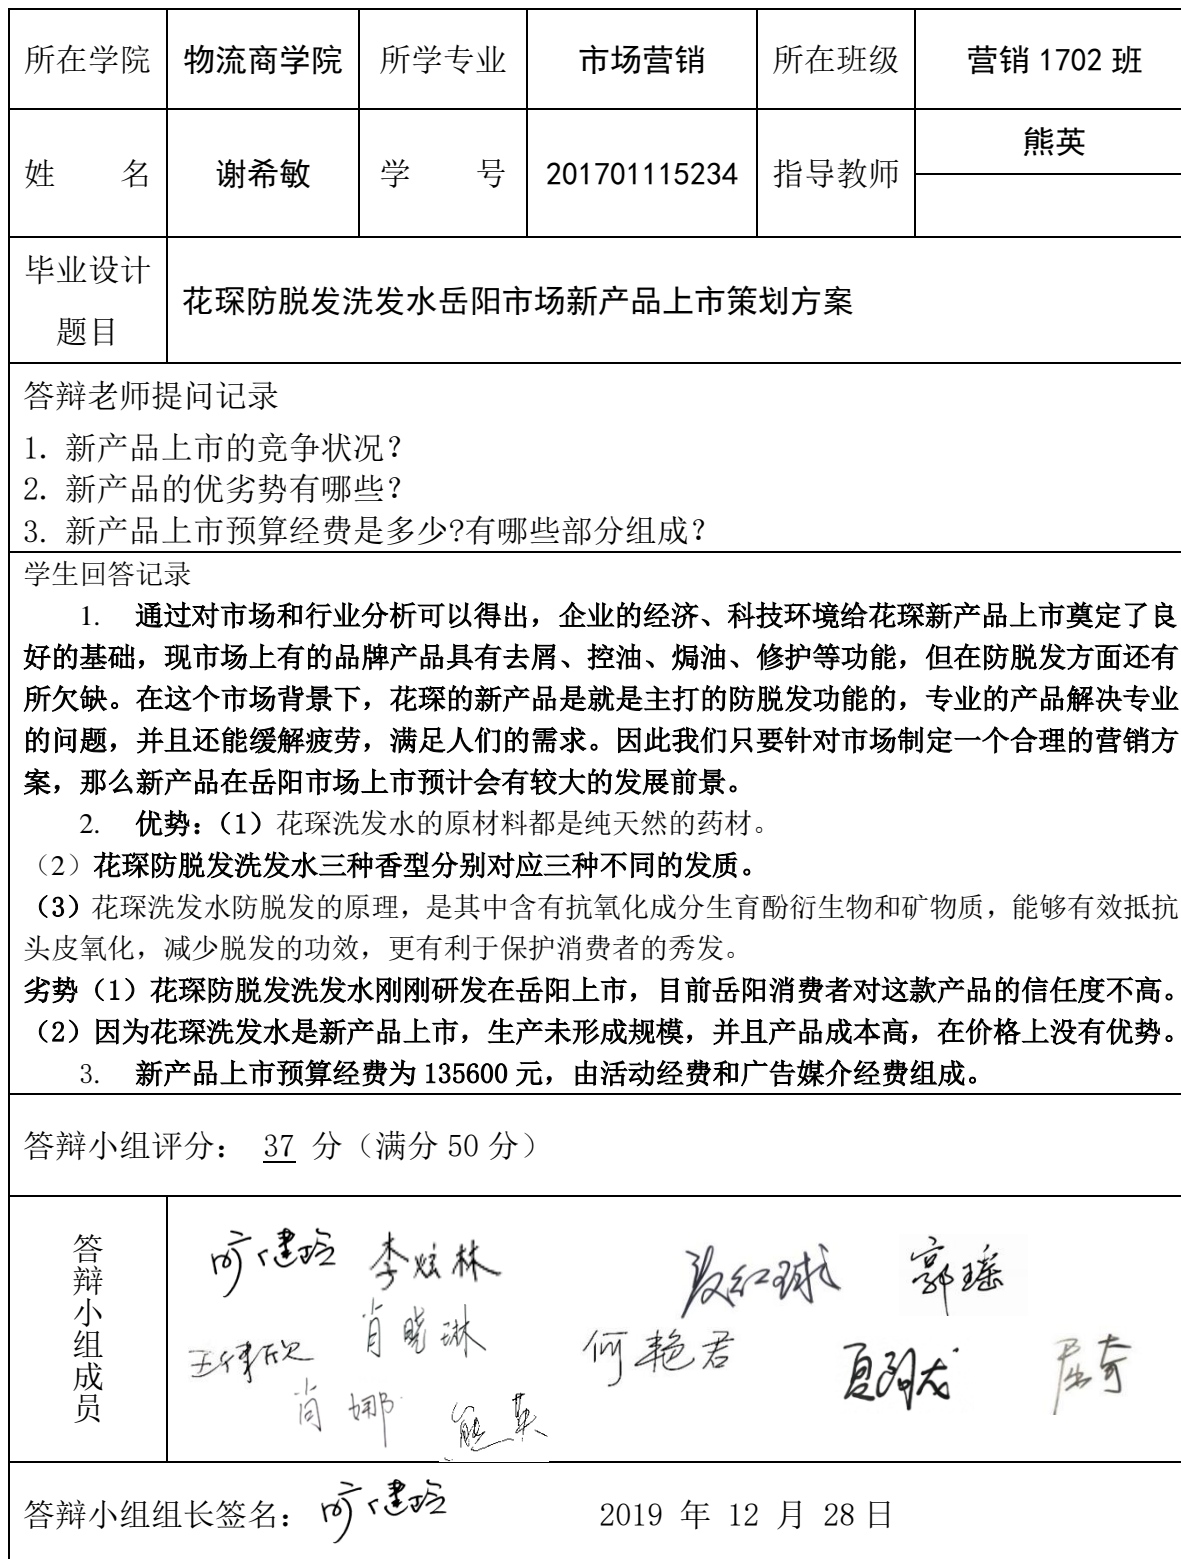 所在学院 物流商学院 所学专业 市场营销 所在班级 营销 1702 班
姓 名 谢希敏 学 号 201701115234 指导教师 熊英
毕业设计
题目
花琛防脱发洗发水岳阳市场新产品上市策划方案
答辩老师提问记录
1. 新产品上市的竞争状况?
2. 新产品的优劣势有哪些?
3. 新产品上市预算经费是多少?有哪些部分组成?
学生回答记录
1. 通过对市场和行业分析可以得出，企业的经济、科技环境给花琛新产品上市奠定了良
好的基础，现市场上有的品牌产品具有去屑、控油、焗油、修护等功能，但在防脱发方面还有
所欠缺。在这个市场背景下，花琛的新产品是就是主打的防脱发功能的，专业的产品解决专业
的问题，并且还能缓解疲劳，满足人们的需求。因此我们只要针对市场制定一个合理的营销方
案，那么新产品在岳阳市场上市预计会有较大的发展前景。
2. 优势：（1）花琛洗发水的原材料都是纯天然的药材。
（2）花琛防脱发洗发水三种香型分别对应三种不同的发质。
（3）花琛洗发水防脱发的原理，是其中含有抗氧化成分生育酚衍生物和矿物质，能够有效抵抗
头皮氧化，减少脱发的功效，更有利于保护消费者的秀发。
劣势（1）花琛防脱发洗发水刚刚研发在岳阳上市，目前岳阳消费者对这款产品的信任度不高。
（2）因为花琛洗发水是新产品上市，生产未形成规模，并且产品成本高，在价格上没有优势。
3. 新产品上市预算经费为 135600 元，由活动经费和广告媒介经费组成。
答辩小组评分： 37 分（满分 50 分）
答辩小组成员
李炫林 郭瑶
肖晓琳 何艳君 屈奇
肖娜 熊英
答辩小组组长签名：
2019 年 12 月 28 日